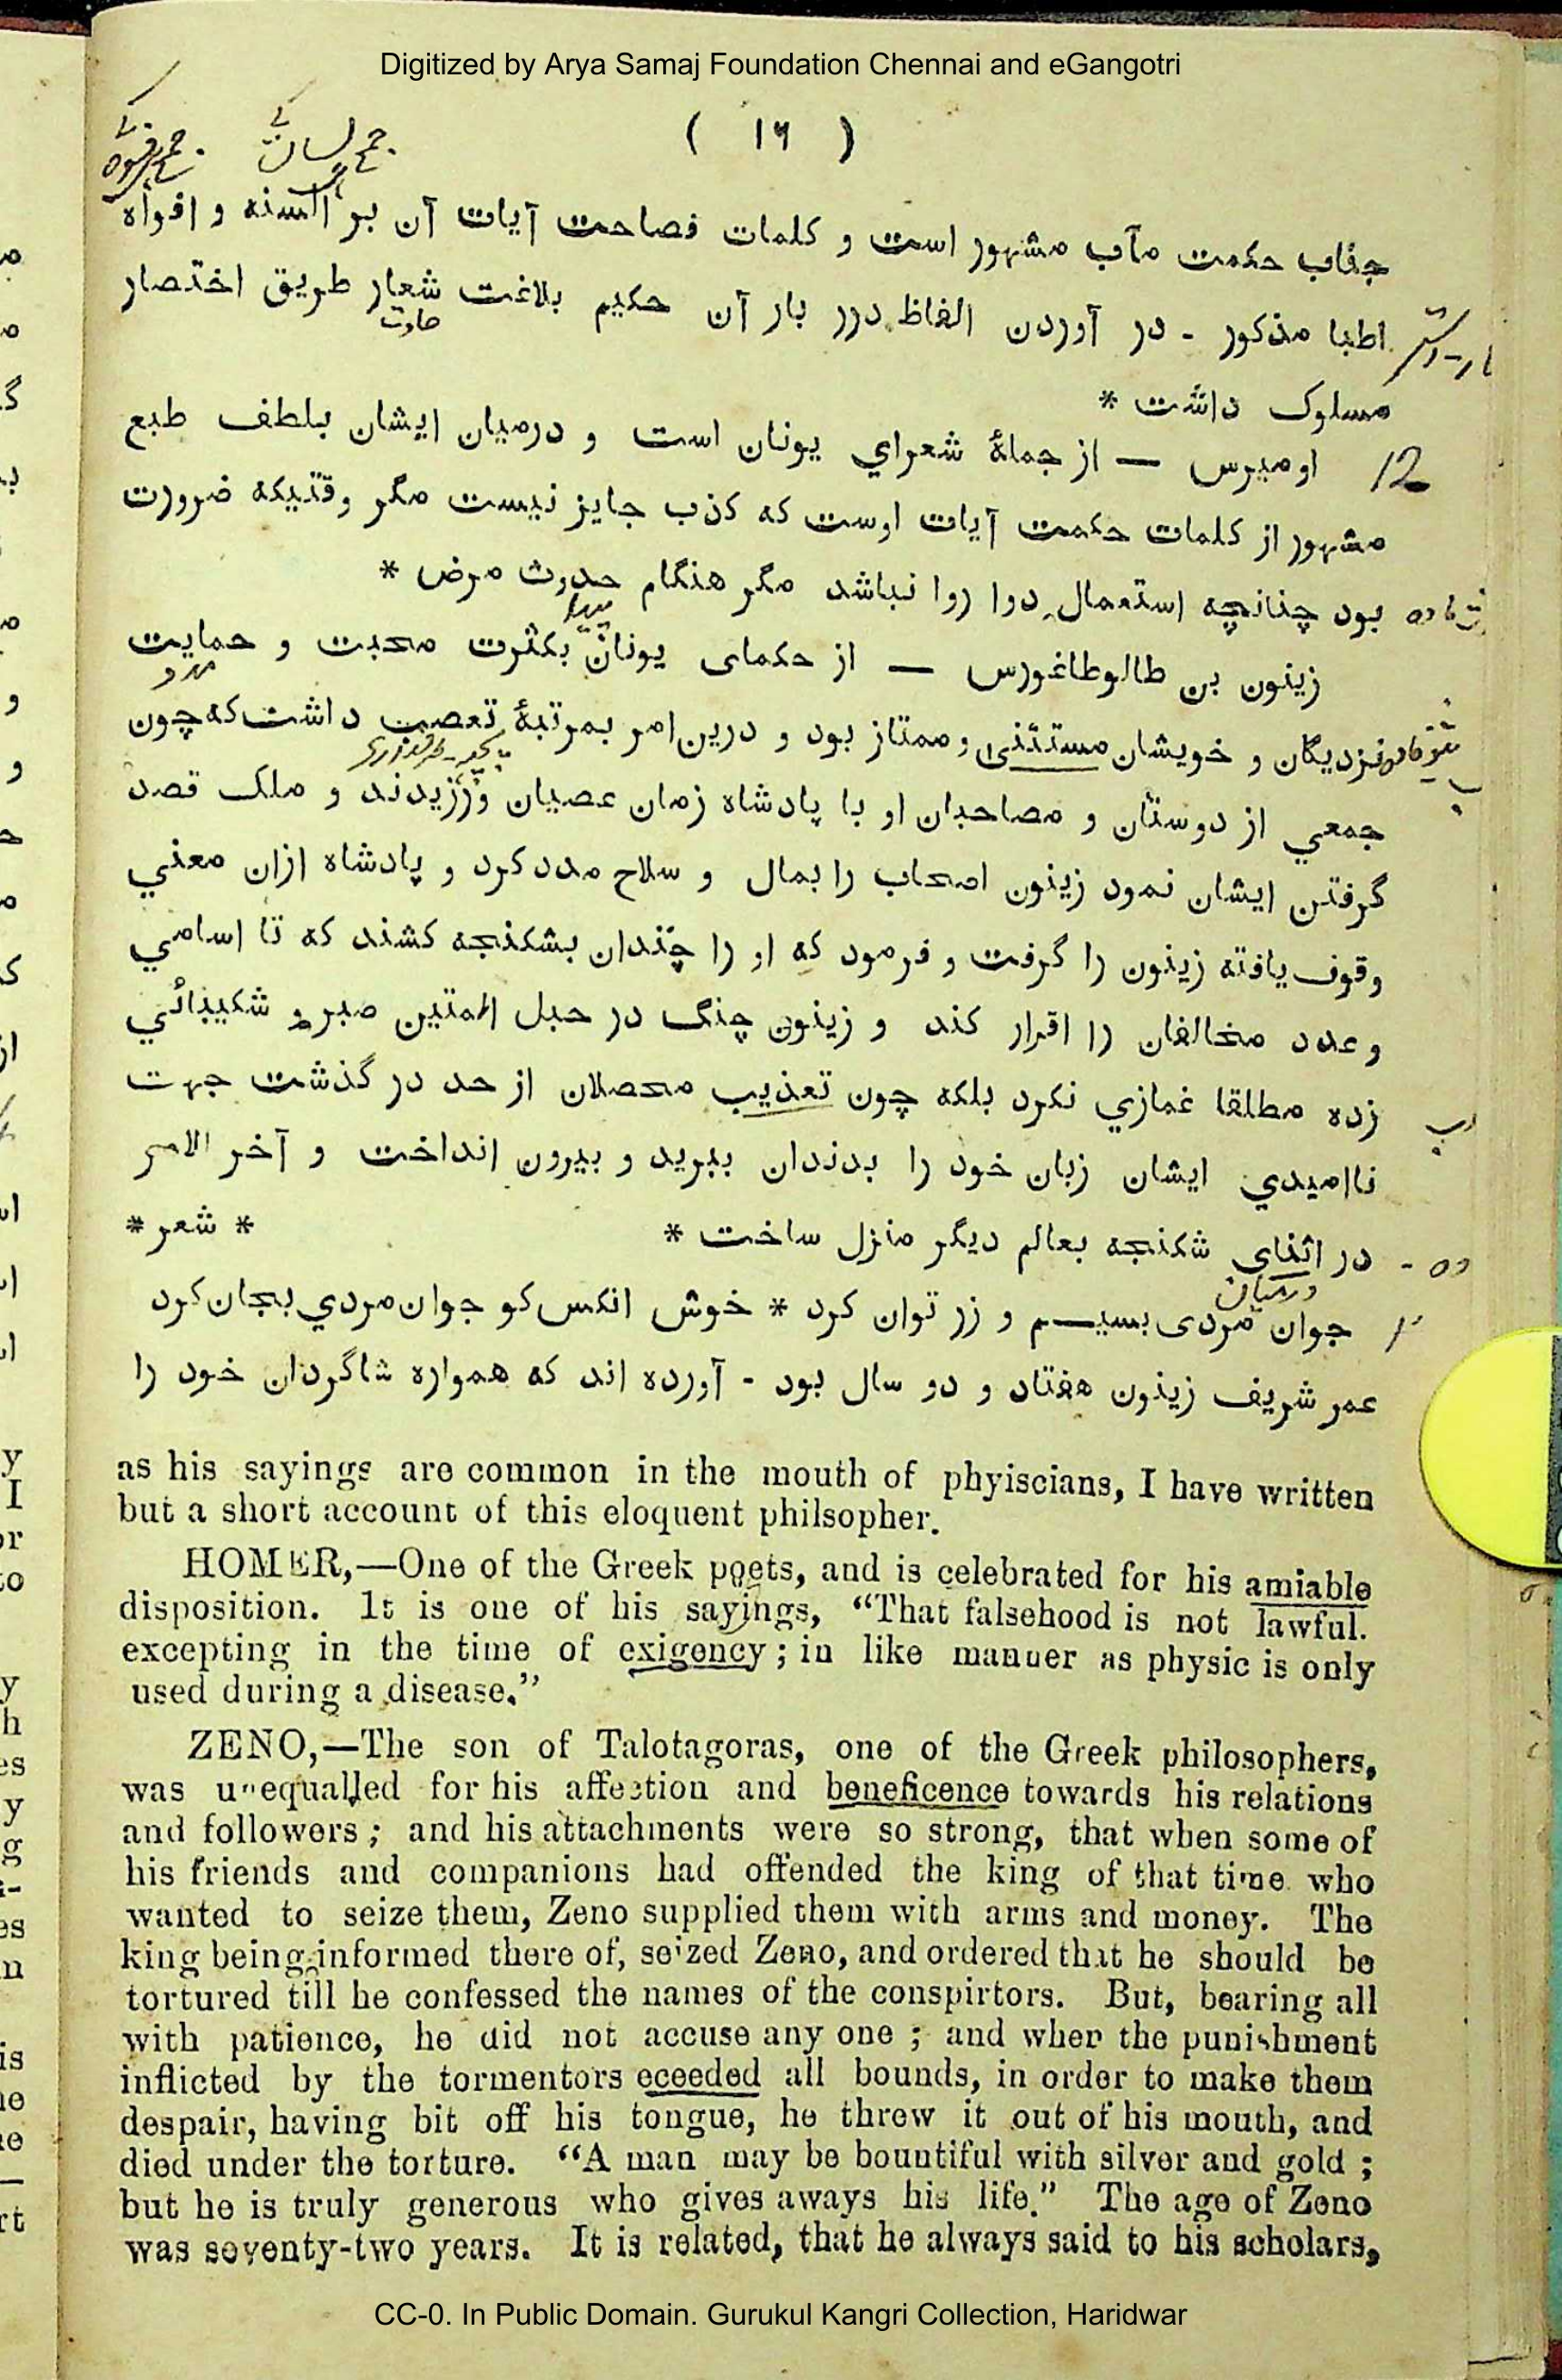 Digitized by Arya Samaj Foundation Chennai and eGangotri
( ۱۶ )
جناب حکمت مآب مشهور است و کلمات فصاحت آیات آن بر السنه و افواه
اطبا مذکور - در آوردن الفاظ درر بار آن حکیم بلاغت شعار طریق اختصار
مسلوک داشت *
12 اومیرس — از جملهٔ شعراي یونان است و درمیان ایشان بلطف طبع
مشهور از کلمات حکمت آیات اوست که کذب جایز نیست مگر وقتیکه ضرورت
بود چنانچه استعمال دوا روا نباشد مگر هنگام حدوث مرض *
زینون بن طالوطاغورس — از حکمای یونان بکثرت محبت و حمایت
نزدیکان و خویشان مستثنی و ممتاز بود و درین امر بمرتبهٔ تعصب داشت که چون
جمعي از دوستان و مصاحبان او با پادشاه زمان عصیان ورزیدند و ملک قصد
گرفتن ایشان نمود زینون اصحاب را بمال و سلاح مدد کرد و پادشاه ازان معني
وقوف یافته زینون را گرفت و فرمود که او را چندان بشکنجه کشند که تا اسامي
و عدد مخالفان را اقرار کند و زینون چنگ در حبل المتین صبر و شکیبائي
زده مطلقا غمازي نکرد بلکه چون تعذیب محصلان از حد در گذشت جهت
ناامیدي ایشان زبان خود را بدندان ببرید و بیرون انداخت و آخر الامر
در اثنای شکنجه بعالم دیگر منزل ساخت * * شعر *
درمیان
جوان مردی بسیم و زر توان کرد * خوش انکس کو جوان مردي بجان کرد
عمر شریف زینون هفتاد و دو سال بود - آورده اند که همواره شاگردان خود را
as his sayings are common in the mouth of phyiscians, I have written
but a short account of this eloquent philsopher.
HOMER,—One of the Greek poets, and is celebrated for his amiable
disposition. It is one of his sayings, “That falsehood is not lawful.
excepting in the time of exigency ; in like manuer as physic is only
used during a disease.”
ZENO,—The son of Talotagoras, one of the Greek philosophers,
was unequalled for his affection and beneficence towards his relations
and followers ; and his attachments were so strong, that when some of
his friends and companions had offended the king of that time who
wanted to seize them, Zeno supplied them with arms and money. The
king being informed there of, seized Zeno, and ordered that he should be
tortured till he confessed the names of the conspirtors. But, bearing all
with patience, he did not accuse any one ; and when the punishment
inflicted by the tormentors eceeded all bounds, in order to make them
despair, having bit off his tongue, he threw it out of his mouth, and
died under the torture. “A man may be bountiful with silver and gold ;
but he is truly generous who gives aways his life.” The age of Zeno
was seventy-two years. It is related, that he always said to his scholars,
CC-0. In Public Domain. Gurukul Kangri Collection, Haridwar